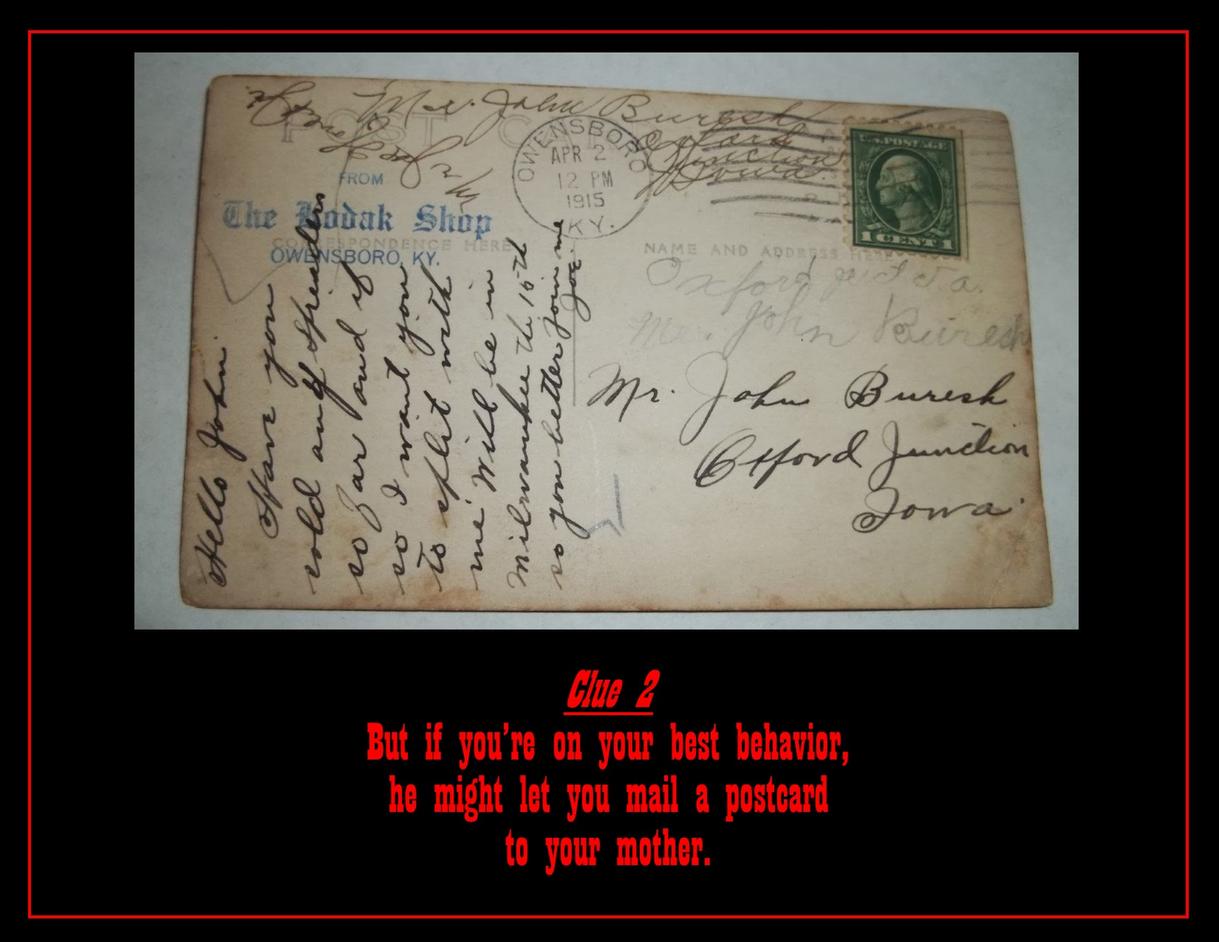 Mr. John Buresh
Oxford
Junction
Iowa.
POST
OWENSBORO
APR 2
12 PM
1915
KY.
U.S. POSTAGE
1 CENT 1
FROM
The Kodak Shop
CORRESPONDENCE HERE
OWENSBORO, KY.
NAME AND ADDRESS HERE
Hello John.
Have you
sold any Spreaders
so far and if
so I want you
to split with
me. Will be in
Milwaukee the 15th
so you better join me
Joe.
Oxford
Mr. John Buresh
Mr. John Buresh
Oxford Junction
Iowa.
Clue 2
But if you're on your best behavior,
he might let you mail a postcard
to your mother.